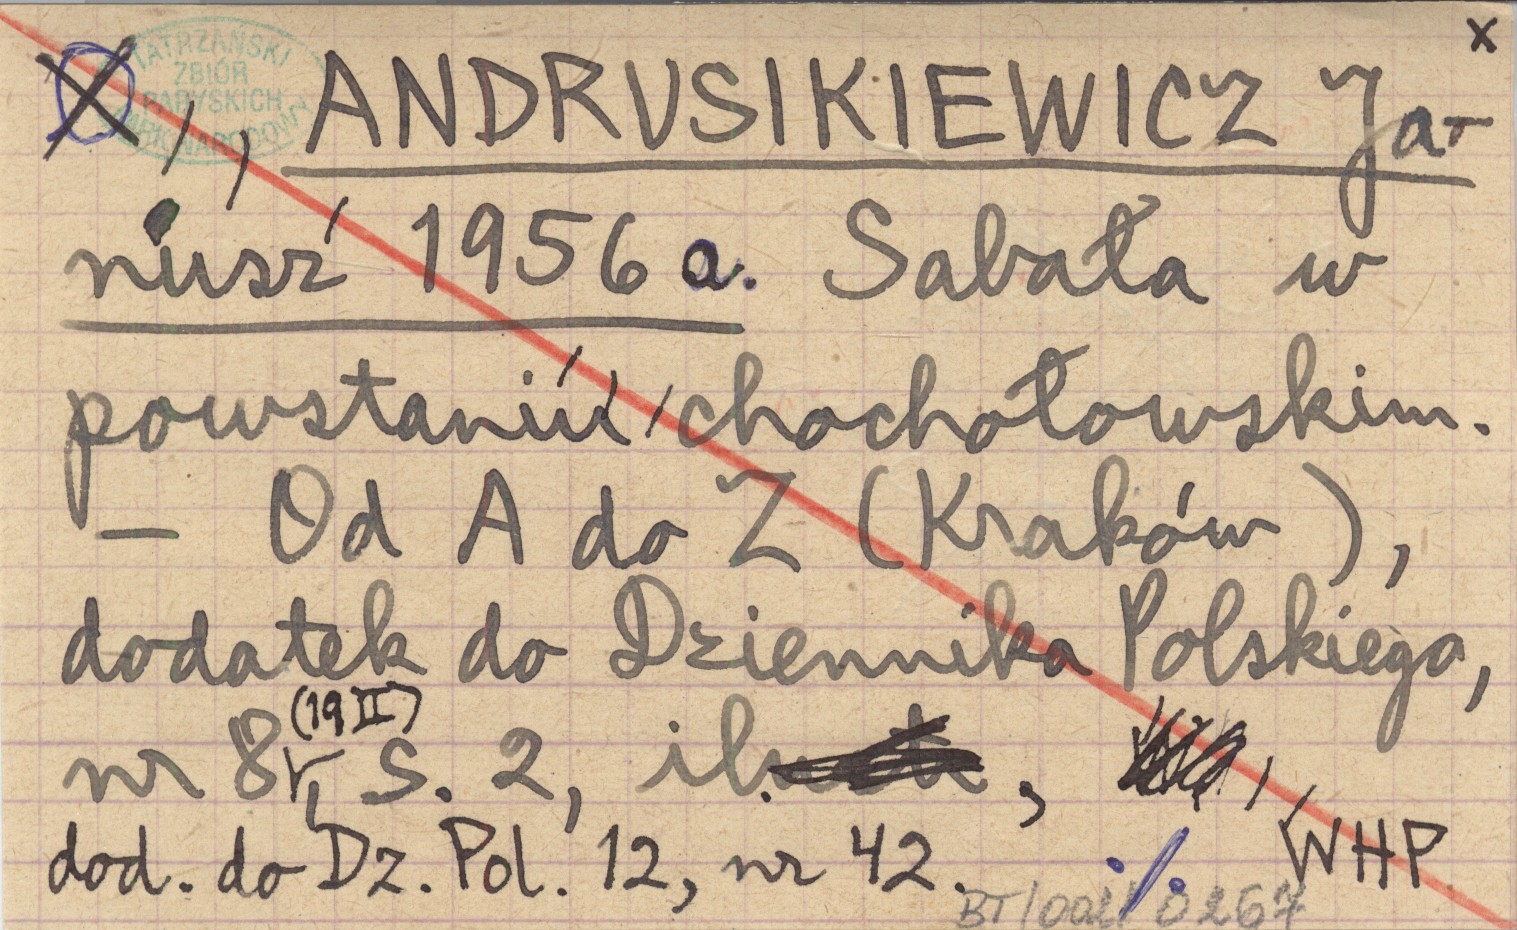 x
TATRZAŃSKI
ZBIÓR
PARYSKICH
PARK NARODOWY
X ANDRUSIKIEWICZ Ja-
nusz 1956a. Sabała w
powstaniu chochołowskim.
— Od A do Z (Kraków),
dodatek do Dziennika Polskiego,
(19 II)
nr 8, s. 2, il.,
dod. do Dz. Pol. 12, nr 42. ./. WHP
0267